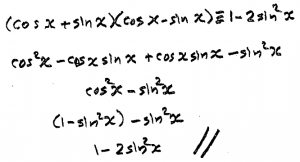 (cos x + sin x)(cos x - sin x) ≡ 1 - 2 sin²x
cos²x - cos x sin x + cos x sin x - sin²x
cos²x - sin²x
(1 - sin²x) - sin²x
1 - 2 sin²x //